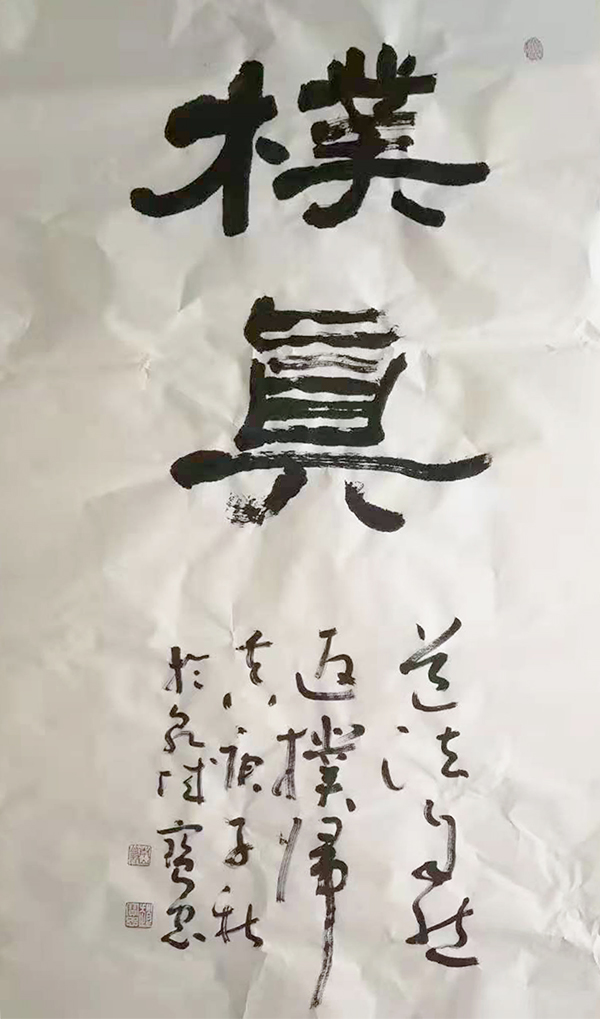 樸真
道法自然
返樸歸
真庚子秋
於泉城寶忠